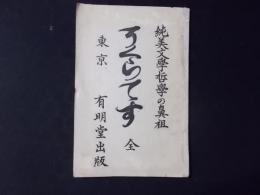 純美文學哲學の真祖
そくらてす 全
東京 有明堂出版